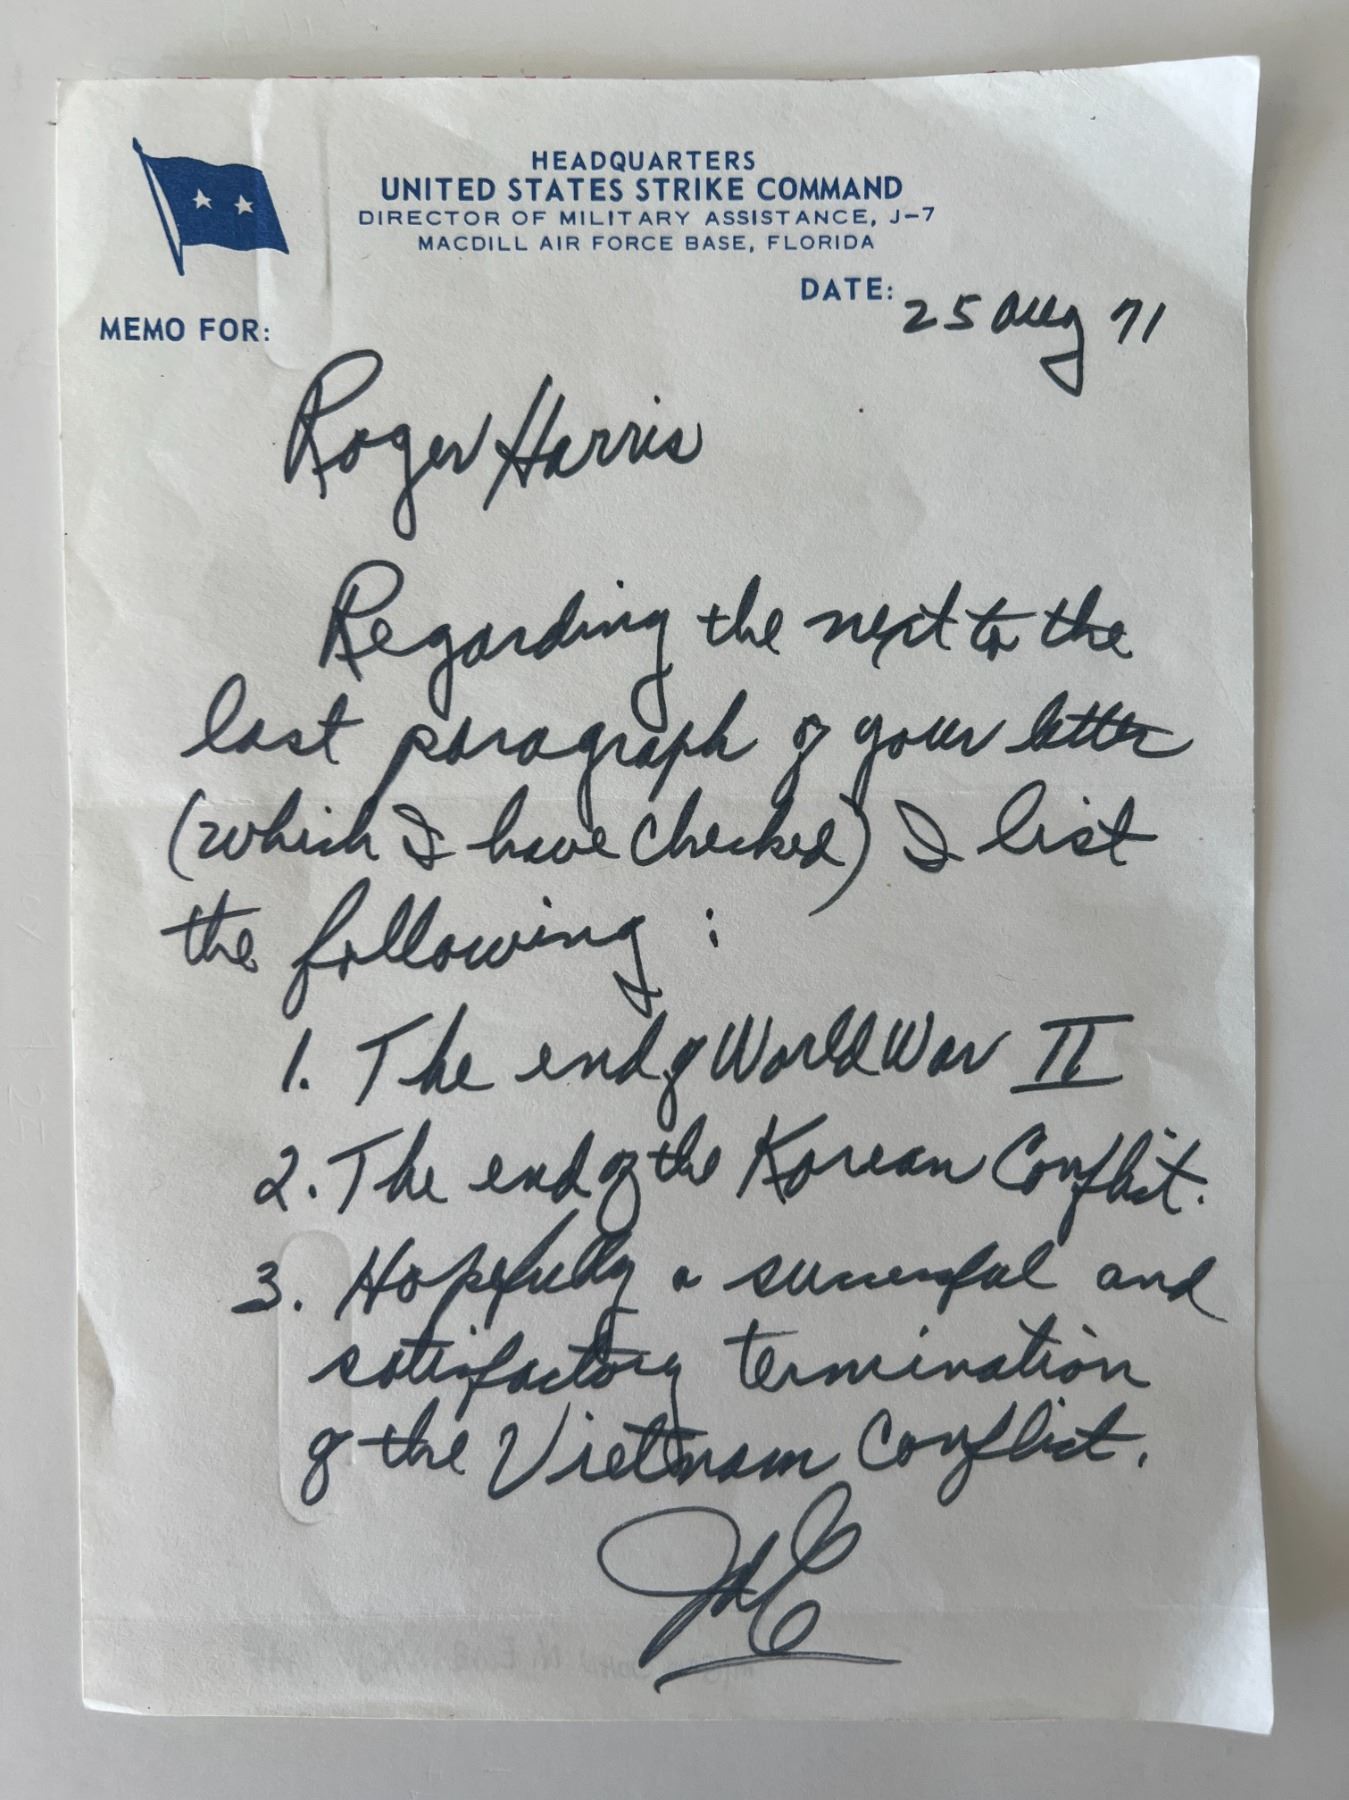 HEADQUARTERS
UNITED STATES STRIKE COMMAND
DIRECTOR OF MILITARY ASSISTANCE, J-7
MACDILL AIR FORCE BASE, FLORIDA
DATE: 25 Aug 71
MEMO FOR:
Roger Harris
Regarding the next to the
last paragraph of your letter
(which I have checked) I list
the following:
1. The end of World War II
2. The end of the Korean Conflict.
3. Hopefully a successful and
satisfactory termination
of the Vietnam Conflict.